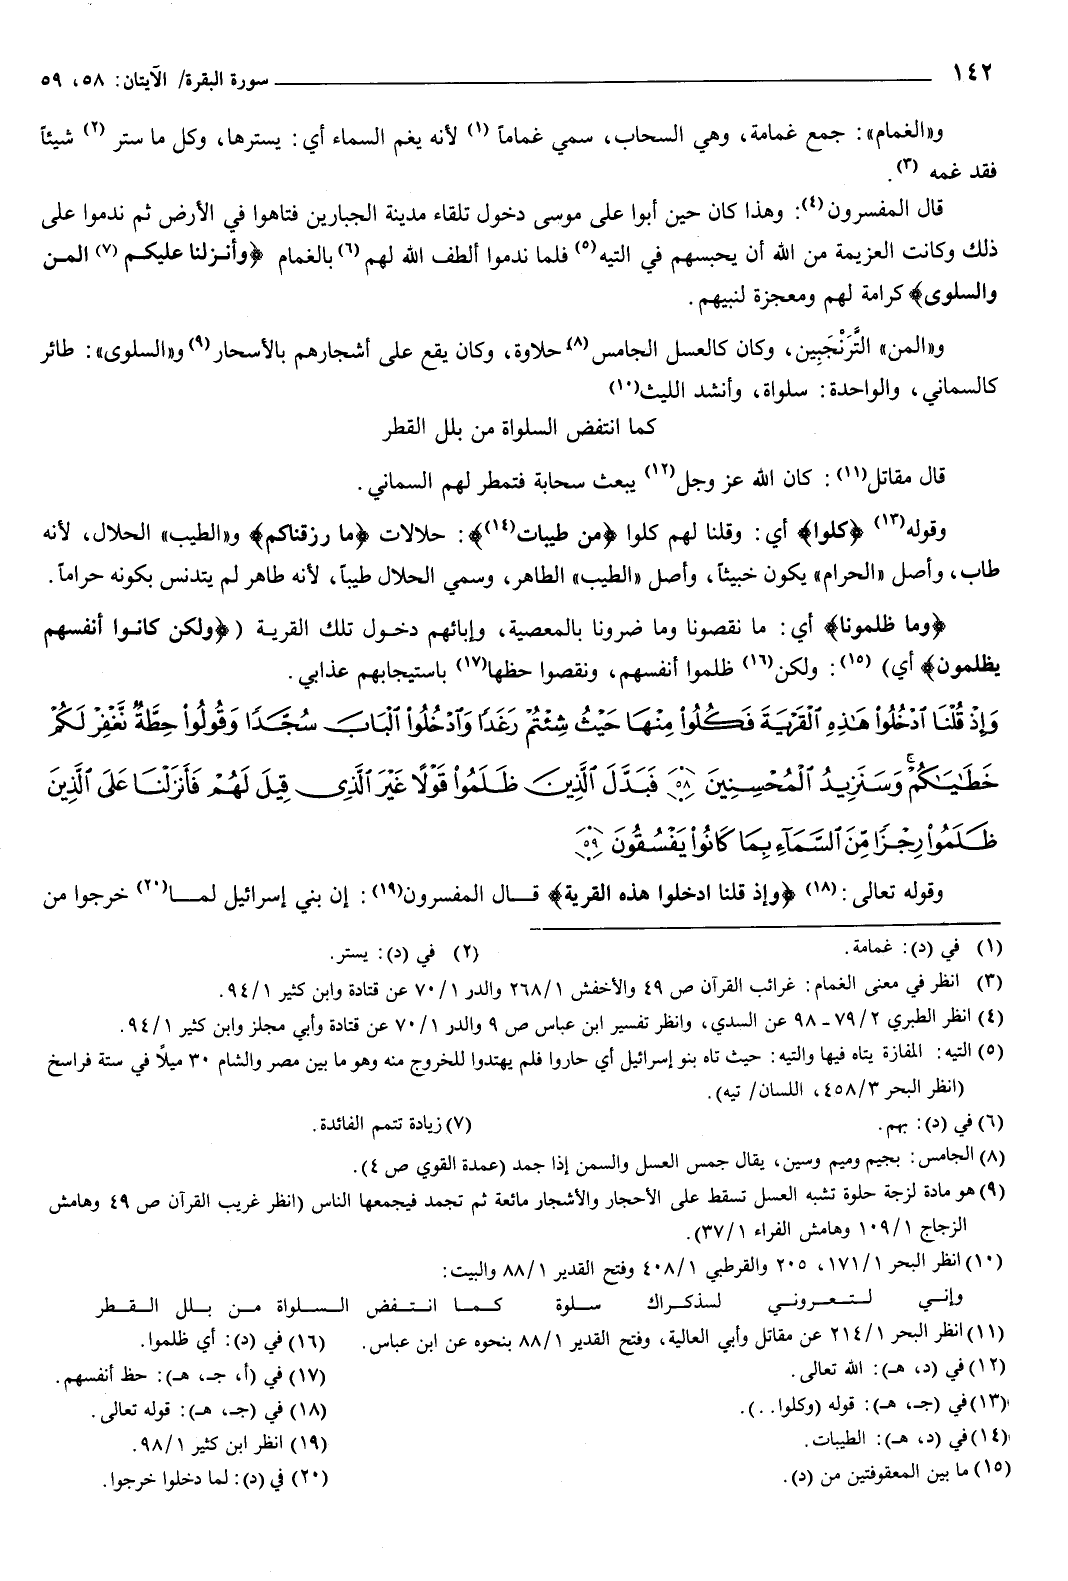 ١٤٢ ــــــــ سورة البقرة/ الآيتان: ٥٨، ٥٩
و«الغمام»: جمع غمامة، وهي السحاب، سمي غماماً (١) لأنه يغم السماء أي: يسترها، وكل ما ستر (٢) شيئاً
فقد غمه (٣).
قال المفسرون(٤): وهذا كان حين أبوا على موسى دخول تلقاء مدينة الجبارين فتاهوا في الأرض ثم ندموا على
ذلك وكانت العزيمة من الله أن يحبسهم في التيه(٥) فلما ندموا ألطف الله لهم(٦) بالغمام ﴿وأنـزلنا عليكـم (٧) المـن
والسلوى﴾ كرامة لهم ومعجزة لنبيهم.
و«المن» التَّرَنْجَبِين، وكان كالعسل الجامس(٨) حلاوة، وكان يقع على أشجارهم بالأسحار(٩) و«السلوى»: طائر
كالسماني، والواحدة: سلواة، وأنشد الليث(١٠)
كما انتفض السلواة من بلل القطر
قال مقاتل(١١): كان الله عز وجل(١٢) يبعث سحابة فتمطر لهم السماني.
وقوله(١٣) ﴿كلوا﴾ أي: وقلنا لهم كلوا ﴿من طيبات(١٤)﴾: حلالات ﴿ما رزقناكم﴾ و«الطيب» الحلال، لأنه
طاب، وأصل «الحرام» يكون خبيثاً، وأصل «الطيب» الطاهر، وسمي الحلال طيباً، لأنه طاهر لم يتدنس بكونه حراماً.
﴿وما ظلمونا﴾ أي: ما نقصونا وما ضرونا بالمعصية، وإبائهم دخـول تلك القريـة (﴿ولكن كانـوا أنفسهم
يظلمون﴾ أي) (١٥): ولكن(١٦) ظلموا أنفسهم، ونقصوا حظها(١٧) باستيجابهم عذابي.
وَإِذْ قُلْنَا ٱدْخُلُوا۟ هَٰذِهِ ٱلْقَرْيَةَ فَكُلُوا۟ مِنْهَا حَيْثُ شِئْتُمْ رَغَدًا وَٱدْخُلُوا۟ ٱلْبَابَ سُجَّدًا وَقُولُوا۟ حِطَّةٌ نَّغْفِرْ لَكُمْ
خَطَٰيَٰكُمْ ۚ وَسَنَزِيدُ ٱلْمُحْسِنِينَ ٥٨ فَبَدَّلَ ٱلَّذِينَ ظَلَمُوا۟ قَوْلًا غَيْرَ ٱلَّذِى قِيلَ لَهُمْ فَأَنزَلْنَا عَلَى ٱلَّذِينَ
ظَلَمُوا۟ رِجْزًا مِّنَ ٱلسَّمَآءِ بِمَا كَانُوا۟ يَفْسُقُونَ ٥٩
وقوله تعالى: (١٨) ﴿وإذ قلنا ادخلوا هذه القرية﴾ قـال المفسرون(١٩): إن بني إسرائيل لمـا(٢٠) خرجوا من
(١) في (د): غمامة. (٢) في (د): يستر.
(٣) انظر في معنى الغمام: غرائب القرآن ص ٤٩ والأخفش ٢٦٨/١ والدر ٧٠/١ عن قتادة وابن كثير ٩٤/١.
(٤) انظر الطبري ٧٩/٢ ـ ٩٨ عن السدي، وانظر تفسير ابن عباس ص ٩ والدر ٧٠/١ عن قتادة وأبي مجلز وابن كثير ٩٤/١.
(٥) التيه: المفازة يتاه فيها والتيه: حيث تاه بنو إسرائيل أي حاروا فلم يهتدوا للخروج منه وهو ما بين مصر والشام ٣٠ ميلًا في ستة فراسخ
(انظر البحر ٤٥٨/٣، اللسان/ تيه).
(٦) في (د): بهم. (٧) زيادة تتمم الفائدة.
(٨) الجامس: بجيم وميم وسين، يقال جمس العسل والسمن إذا جمد (عمدة القوي ص ٤).
(٩) هو مادة لزجة حلوة تشبه العسل تسقط على الأحجار والأشجار مائعة ثم تجمد فيجمعها الناس (انظر غريب القرآن ص ٤٩ وهامش
الزجاج ١٠٩/١ وهامش الفراء ٣٧/١).
(١٠) انظر البحر ١٧١/١، ٢٠٥ والقرطبي ٤٠٨/١ وفتح القدير ٨٨/١ والبيت:
وإني لـتـعـروني لـذكـراك سلوة كـمـا انـتـفـض السـلواة مـن بـلل القـطر
(١١) انظر البحر ٢١٤/١ عن مقاتل وأبي العالية، وفتح القدير ٨٨/١ بنحوه عن ابن عباس. (١٦) في (د): أي ظلموا.
(١٢) في (د، هـ): الله تعالى. (١٧) في (أ، جـ، هـ): حظ أنفسهم.
(١٣) في (جـ، هـ): قوله (وكلوا..). (١٨) في (جـ، هـ): قوله تعالى.
(١٤) في (د، هـ): الطيبات. (١٩) انظر ابن كثير ٩٨/١.
(١٥) ما بين المعقوفتين من (د). (٢٠) في (د): لما دخلوا خرجوا.